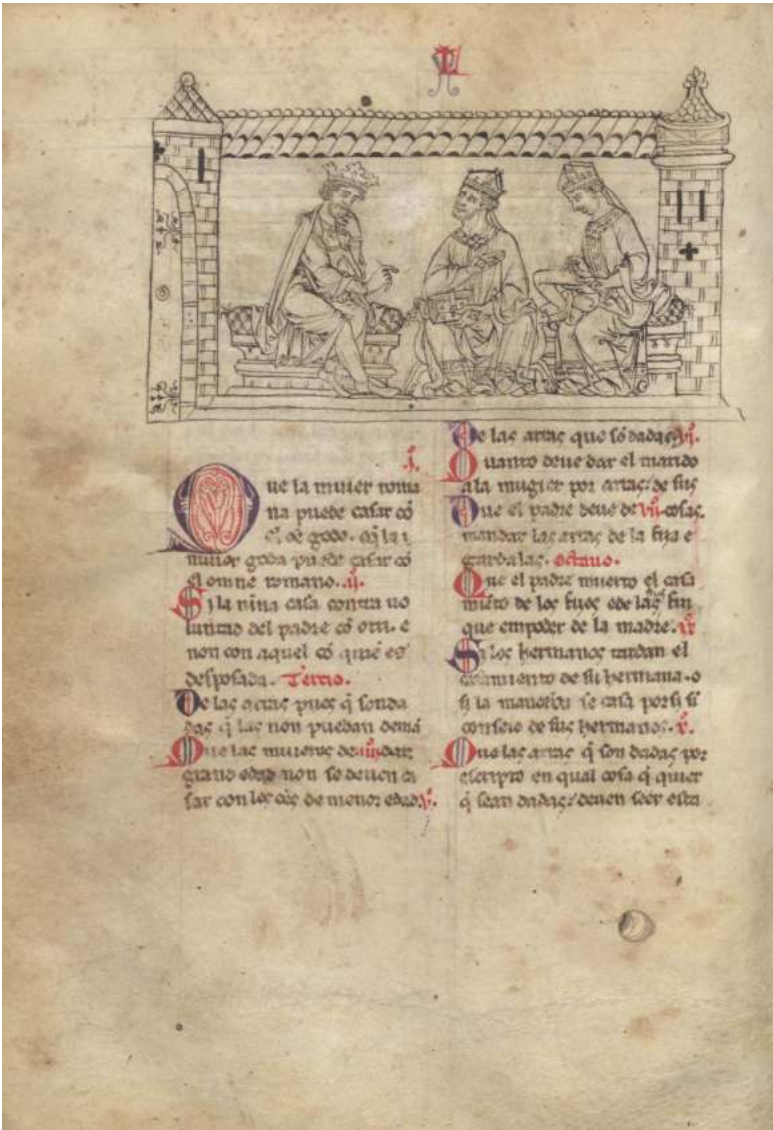 L
i.
Que la muier roma
na puede casar cõ
muier goda puede casar cõ
el omne romano. ii.
Si la nina casa contra uo
luntad del padre cõ otri. e
non con aquel cõ quiẽ es
desposada. Tercio.
De las arras pues q̃ son da
das q̃ las non puedan demã
Que las mugieres de iiii. dar.
grand edad non se deuen ca
sar con los de menor edad. v.
De las arras que sõ dadas. vi.
Quanto deue dar el marido
a la mugier por arras. de sus
Que el padre deue de vii. cosas.
mandar las arras de la fija e
gardalas. octauo.
Que el padre muerto el casa
miẽto de los fijos e de las
que en poder de la madre. ix
Si los hermanos tardan el
casamiento de su hermana. o
si la se casa por si si
conseio de sus hermanos. x.
Que las arras q̃ son dadas por
escripto en qual cosa q̃ quier
q̃ sean dadas: deuen seer esta